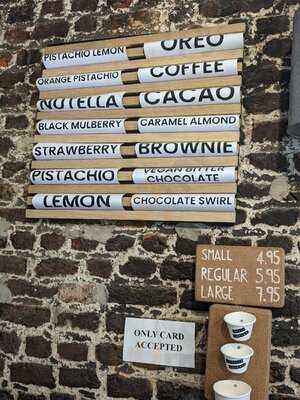 PISTACHIO LEMON OREO
ORANGE PISTACHIO COFFEE
NUTELLA CACAO
BLACK MULBERRY CARAMEL ALMOND
STRAWBERRY BROWNIE
PISTACHIO VEGAN BITTER CHOCOLATE
LEMON CHOCOLATE SWIRL
SMALL 4.95
REGULAR 5.95
LARGE 7.95
ONLY CARD
ACCEPTED